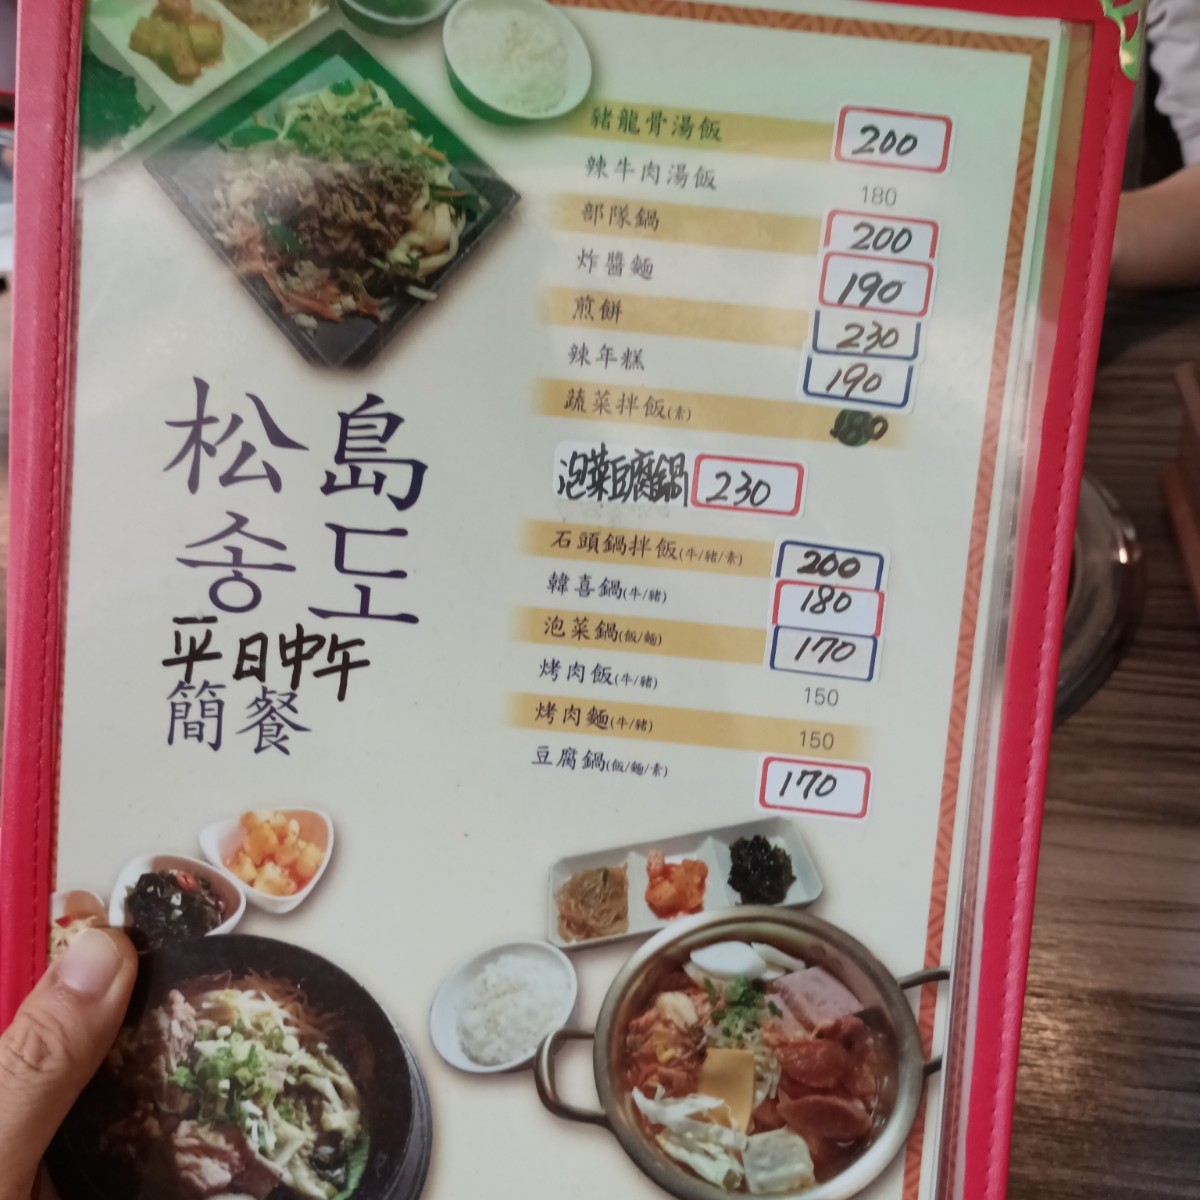 豬龍骨湯飯 200
辣牛肉湯飯 180
部隊鍋 200
炸醬麵 190
煎餅 230
辣年糕 190
蔬菜拌飯(素) 180
泡菜豆腐鍋 230
石頭鍋拌飯(牛/豬/素) 200
韓喜鍋(牛/豬) 180
泡菜鍋(飯/麵) 170
烤肉飯(牛/豬) 150
烤肉麵(牛/豬) 150
豆腐鍋(飯/麵/素) 170
松島
송도
平日中午
簡餐